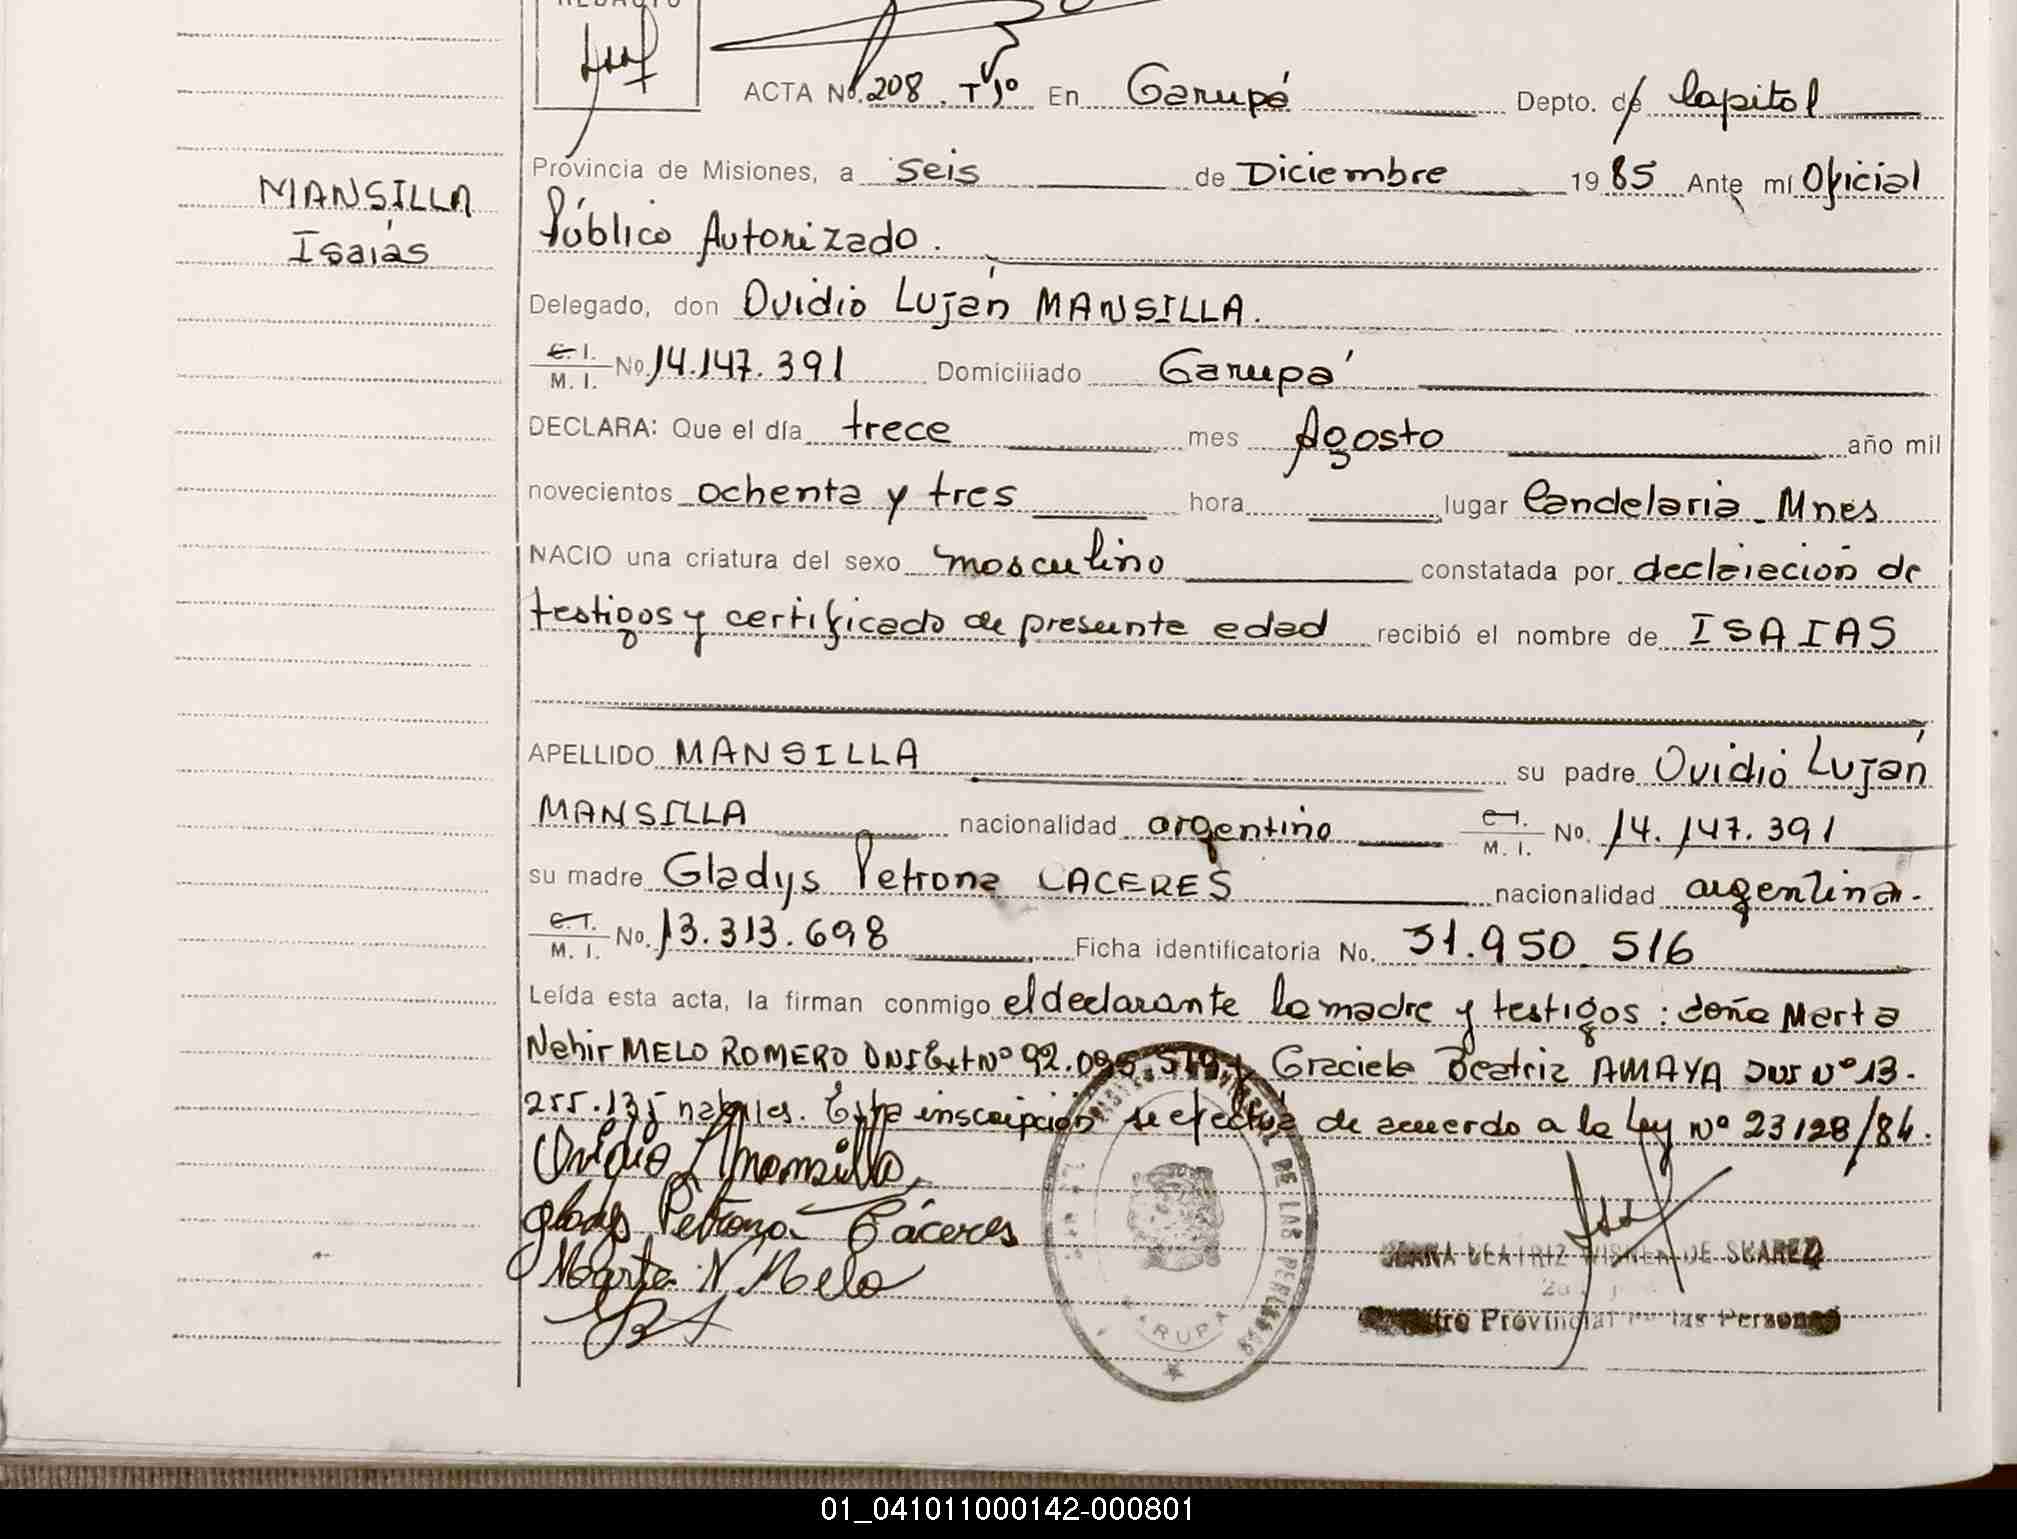 REDACTO
ACTA No. 208. Tº 1º En Garupá Depto. de Capital
Provincia de Misiones, a seis de Diciembre 1985 Ante mí Oficial
MANSILLA
Isaías
Público Autorizado.
Delegado, don Ovidio Luján MANSILLA.
C. I.
M. I. No. 14.147.391 Domiciliado Garupá
DECLARA: Que el día trece mes Agosto año mil
novecientos ochenta y tres hora lugar Candelaria - Mnes
NACIO una criatura del sexo masculino constatada por declaración de
testigos y certificado de presunta edad recibió el nombre de ISAIAS
APELLIDO MANSILLA su padre Ovidio Luján
MANSILLA nacionalidad argentino C. I.
M. I. No. 14.147.391
su madre Gladys Petrona CACERES nacionalidad argentina.
C. I.
M. I. No. 13.313.698 Ficha identificatoria No. 31.950.516
Leída esta acta, la firman conmigo el declarante la madre y testigos: doña Marta
Nehir MELO ROMERO DNI Ext Nº 92.095. y Graciela Beatriz AMAYA DNI Nº 13.
255.135 Esta inscripción se efectúa de acuerdo a la Ley Nº 23128/84.
Ovidio L Mansilla
Gladys Petrona Cáceres
Marta N. Melo
DE LAS PERSONAS
GARUPA
BEATRIZ DE SUAREZ
Registro Provincial de las Personas
01_041011000142-000801